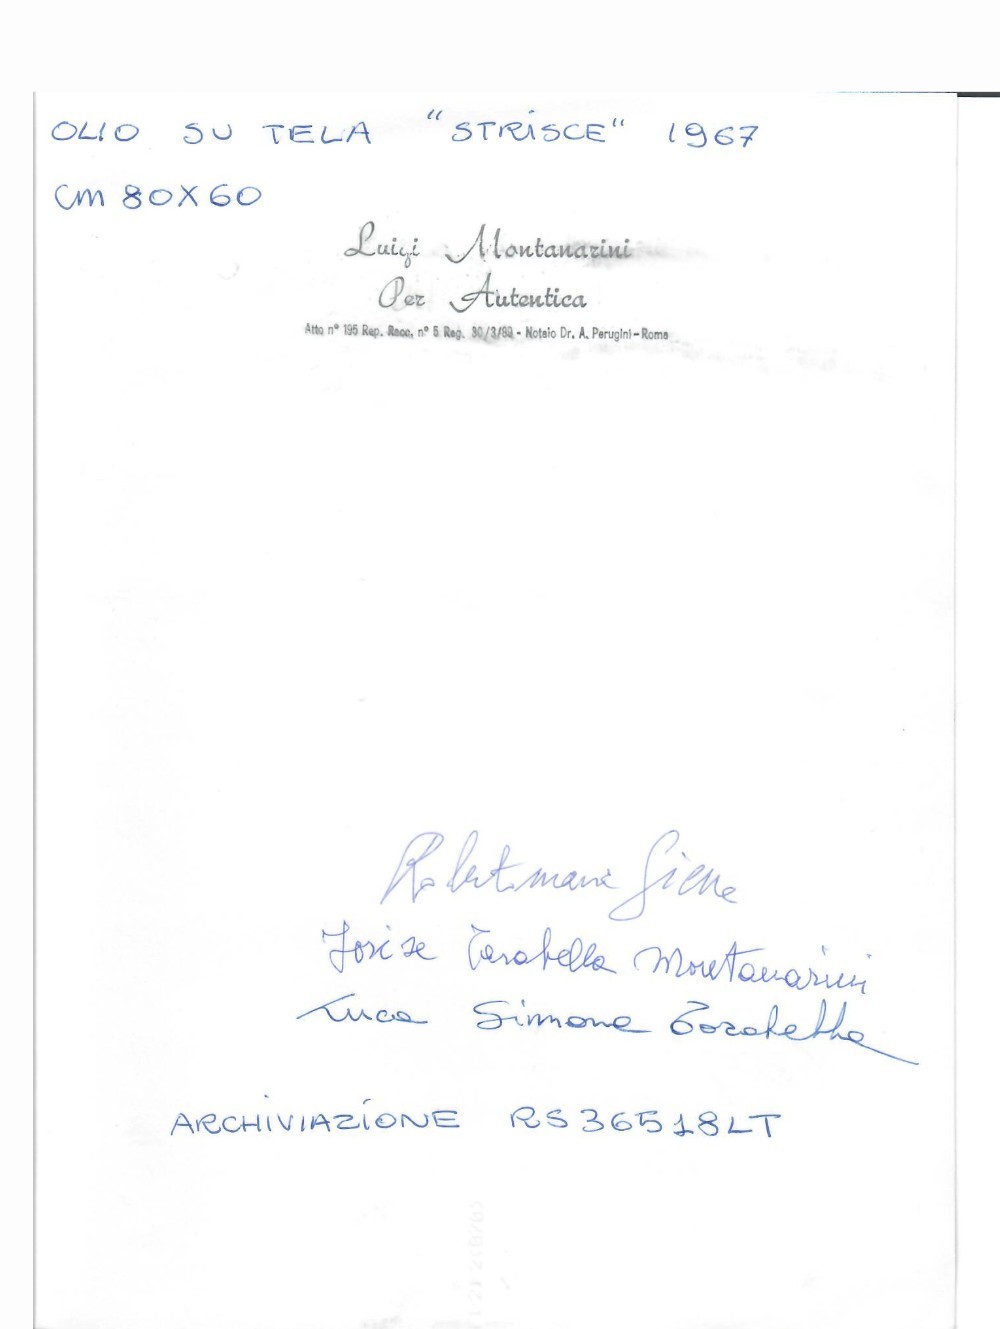 OLIO SU TELA "STRISCE" 1967
cm 80X60
Luigi Montanarini
Per Autentica
Atto n° 195 Rep. Racc. n° 5 Reg. 30/3/89 - Notaio Dr. A. Perugini - Roma
Tarabella Montanarini
Luca Simone Tarabella
ARCHIVIAZIONE RS36518LT